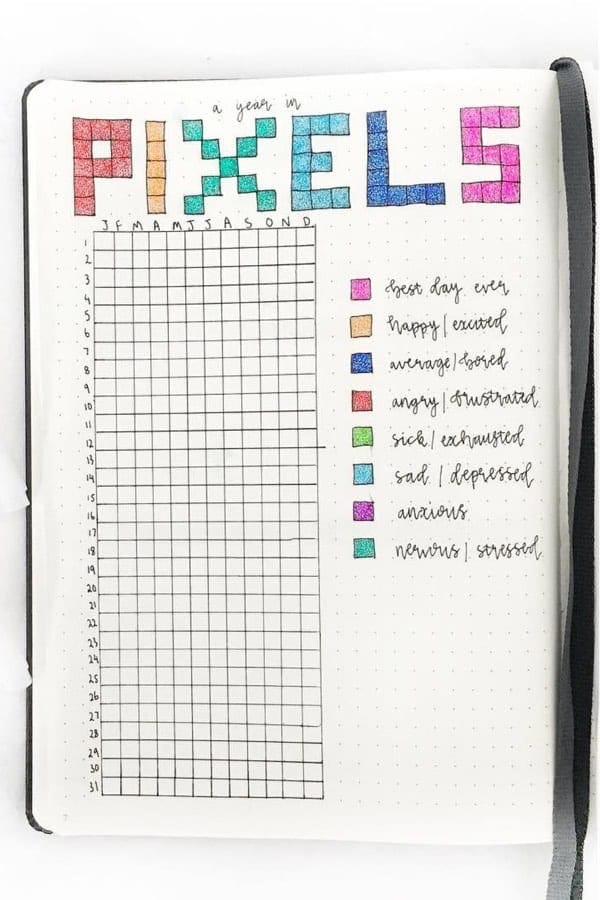 a year in
PIXELS
J F M A M J J A S O N D
1
2
3
4
5
6
7
8
9
10
11
12
13
14
15
16
17
18
19
20
21
22
23
24
25
26
27
28
29
30
31
best day ever
happy/excited
average/bored
angry/frustrated
sick/exhausted
sad/depressed
anxious
nervous/stressed